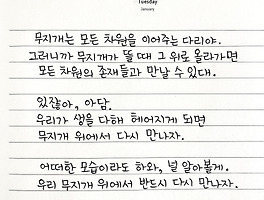 Tuesday
January
무지개는 모든 차원을 이어주는 다리야.
그러니까 무지개가 뜰 때 그 위로 올라가면
모든 차원의 존재들과 만날 수 있대.
있잖아, 아담.
우리가 생을 다해 헤어지게 되면
무지개 위에서 다시 만나자.
어떠한 모습이라도 하와, 널 알아볼게.
우리 무지개 위에서 반드시 다시 만나자.